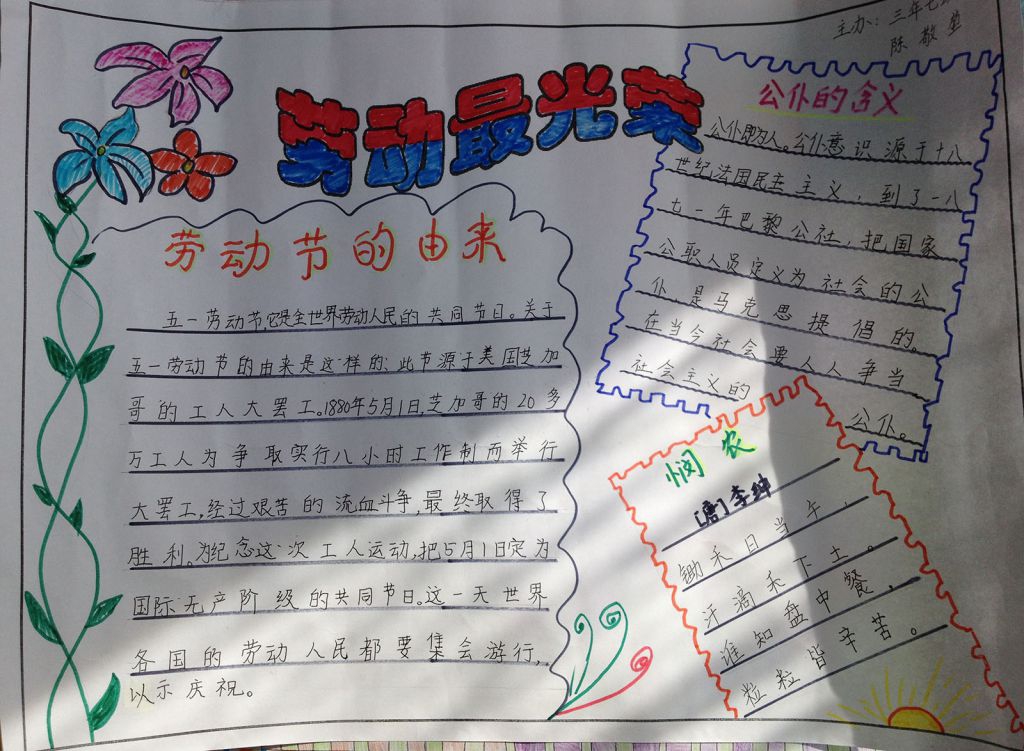 主办：三年七
陈敬莹
劳动最光荣
劳动节的由来
五一劳动节,它是全世界劳动人民的共同节日。关于
五一劳动节的由来是这样的：此节源于美国芝加
哥的工人大罢工。1880年5月1日,芝加哥的20多
万工人为争取实行八小时工作制而举行
大罢工,经过艰苦的流血斗争,最终取得了
胜利。为纪念这次工人运动,把5月1日定为
国际无产阶级的共同节日。这一天世界
各国的劳动人民都要集会游行,
以示庆祝。
公仆的含义
公仆即为人。公仆意识源于十八
世纪法国民主主义，到了一八
七一年巴黎公社，把国家
公职人员定义为社会的公
仆是马克思提倡的。
在当今社会要人人争当
社会主义的
公仆。
悯农
[唐]李绅
锄禾日当午，
汗滴禾下土。
谁知盘中餐，
粒粒皆辛苦。